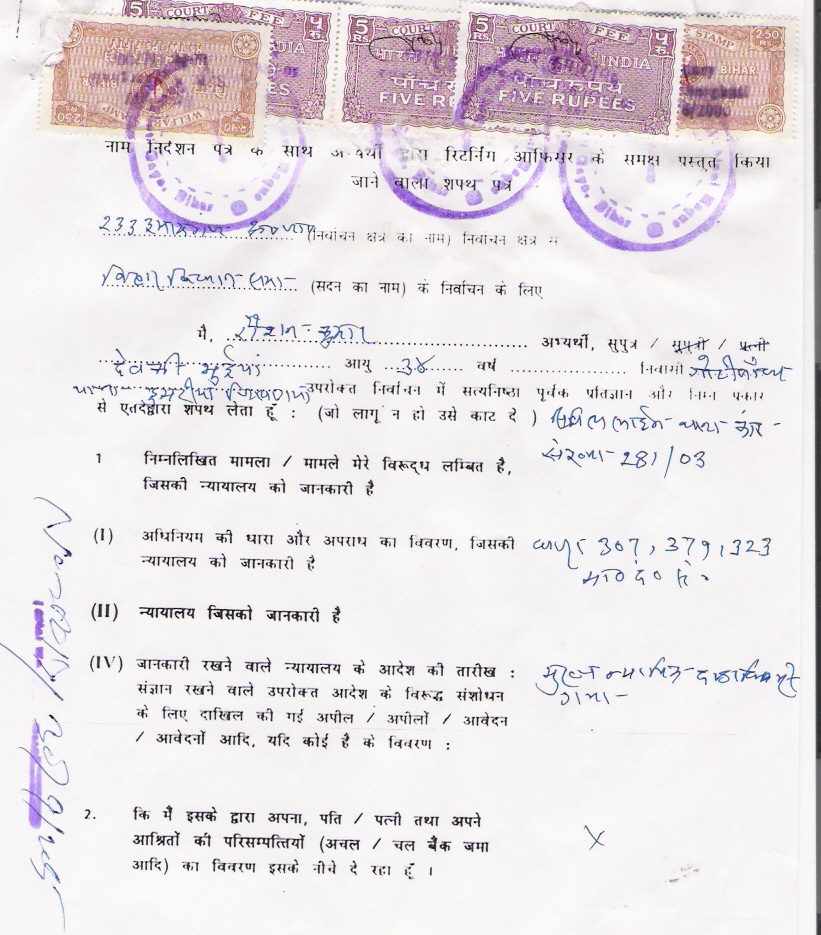 5 RS COURT FEE ५ रु.
भारत INDIA
पाँच रुपये
FIVE RUPEES
2.50 RS BIHAR
WELFARE STAMP
नाम निर्देशन पत्र के साथ अभ्यर्थी द्वारा रिटर्निंग आफिसर के समक्ष प्रस्तुत किया
जाने वाला शपथ पत्र
233 इमामगंज (निर्वाचन क्षेत्र का नाम) निर्वाचन क्षेत्र में
बिहार विधान सभा (सदन का नाम) के निर्वाचन के लिए
मै, रौशन कुमार अभ्यर्थी, सुपुत्र / सुपुत्री / पत्नी
देवकी भुईयां आयु 34 वर्ष निवासी
थाना डुमरीया उपरोक्त निर्वाचन में सत्यनिष्ठा पूर्वक प्रतिज्ञान और निम्न प्रकार
से एतदद्वारा शपथ लेता हूँ : (जो लागू न हो उसे काट दे ) सिविल लाईन थाना कांड
संख्या 281/03
1 निम्नलिखित मामला / मामले मेरे विरूद्ध लम्बित है,
जिसकी न्यायालय को जानकारी है
(I) अधिनियम की धारा और अपराध का विवरण, जिसकी धारा 307, 379, 323
न्यायालय को जानकारी है भा० दं० वि०
(II) न्यायालय जिसको जानकारी है
(IV) जानकारी रखने वाले न्यायालय के आदेश की तारीख : मुख्य न्यायिक दण्डाधिकारी
संज्ञान रखने वाले उपरोक्त आदेश के विरूद्ध संशोधन गया
के लिए दाखिल की गई अपील / अपीलों / आवेदन
/ आवेदनों आदि, यदि कोई है के विवरण :
2. कि मैं इसके द्वारा अपना, पति / पत्नी तथा अपने
आश्रितों की परिसम्पत्तियों (अचल / चल बैंक जमा X
आदि) का विवरण इसके नीचे दे रहा हूँ ।